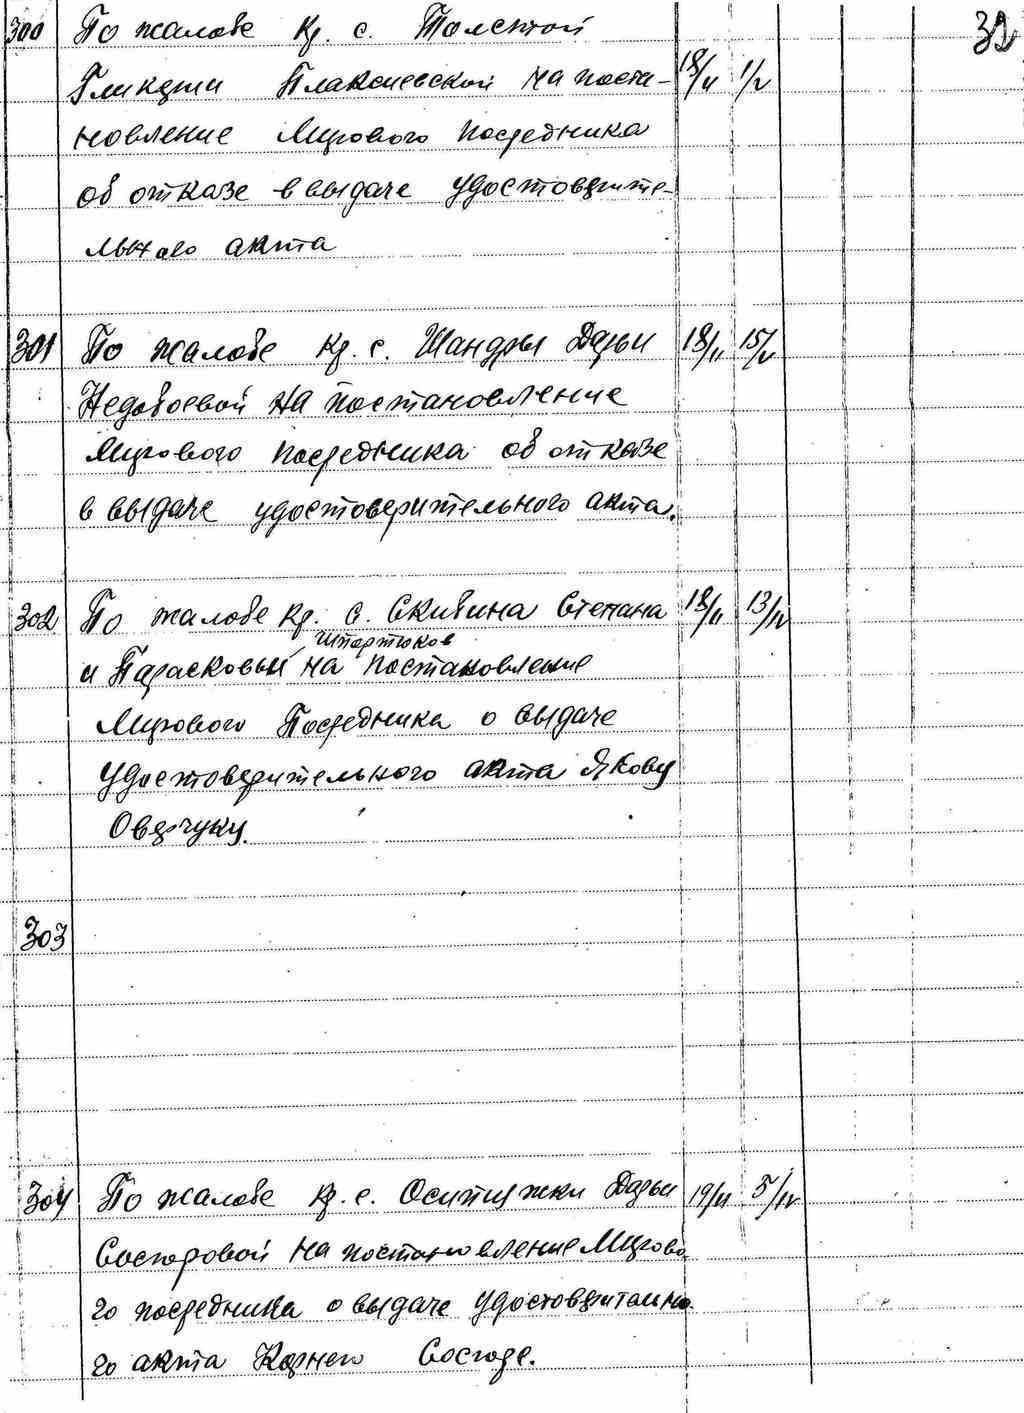 32
300 По жалобе кр. с. Толстой
Гликерии Плаксиевской на поста- 18/II 1/V
новление Мирового посредника
об отказе в выдаче удостоверите-
льного акта
301 По жалобе кр. с. Шандры Дарьи 18/II 15/V
Недобоевой на постановление
Мирового посредника об отказе
в выдаче удостоверительного акта.
302 По жалобе кр. с. Скибина Степана 18/II 13/IV
Шпортюков
и Парасковьи на постановление
Мирового Посредника о выдаче
удостоверительного акта Якову
Оверчуку.
303
304 По жалобе кр. с. Оситняжки Дарьи 19/II 5/IV
на постановление Мирово
го посредника о выдаче удостоверительно
го акта Корнею